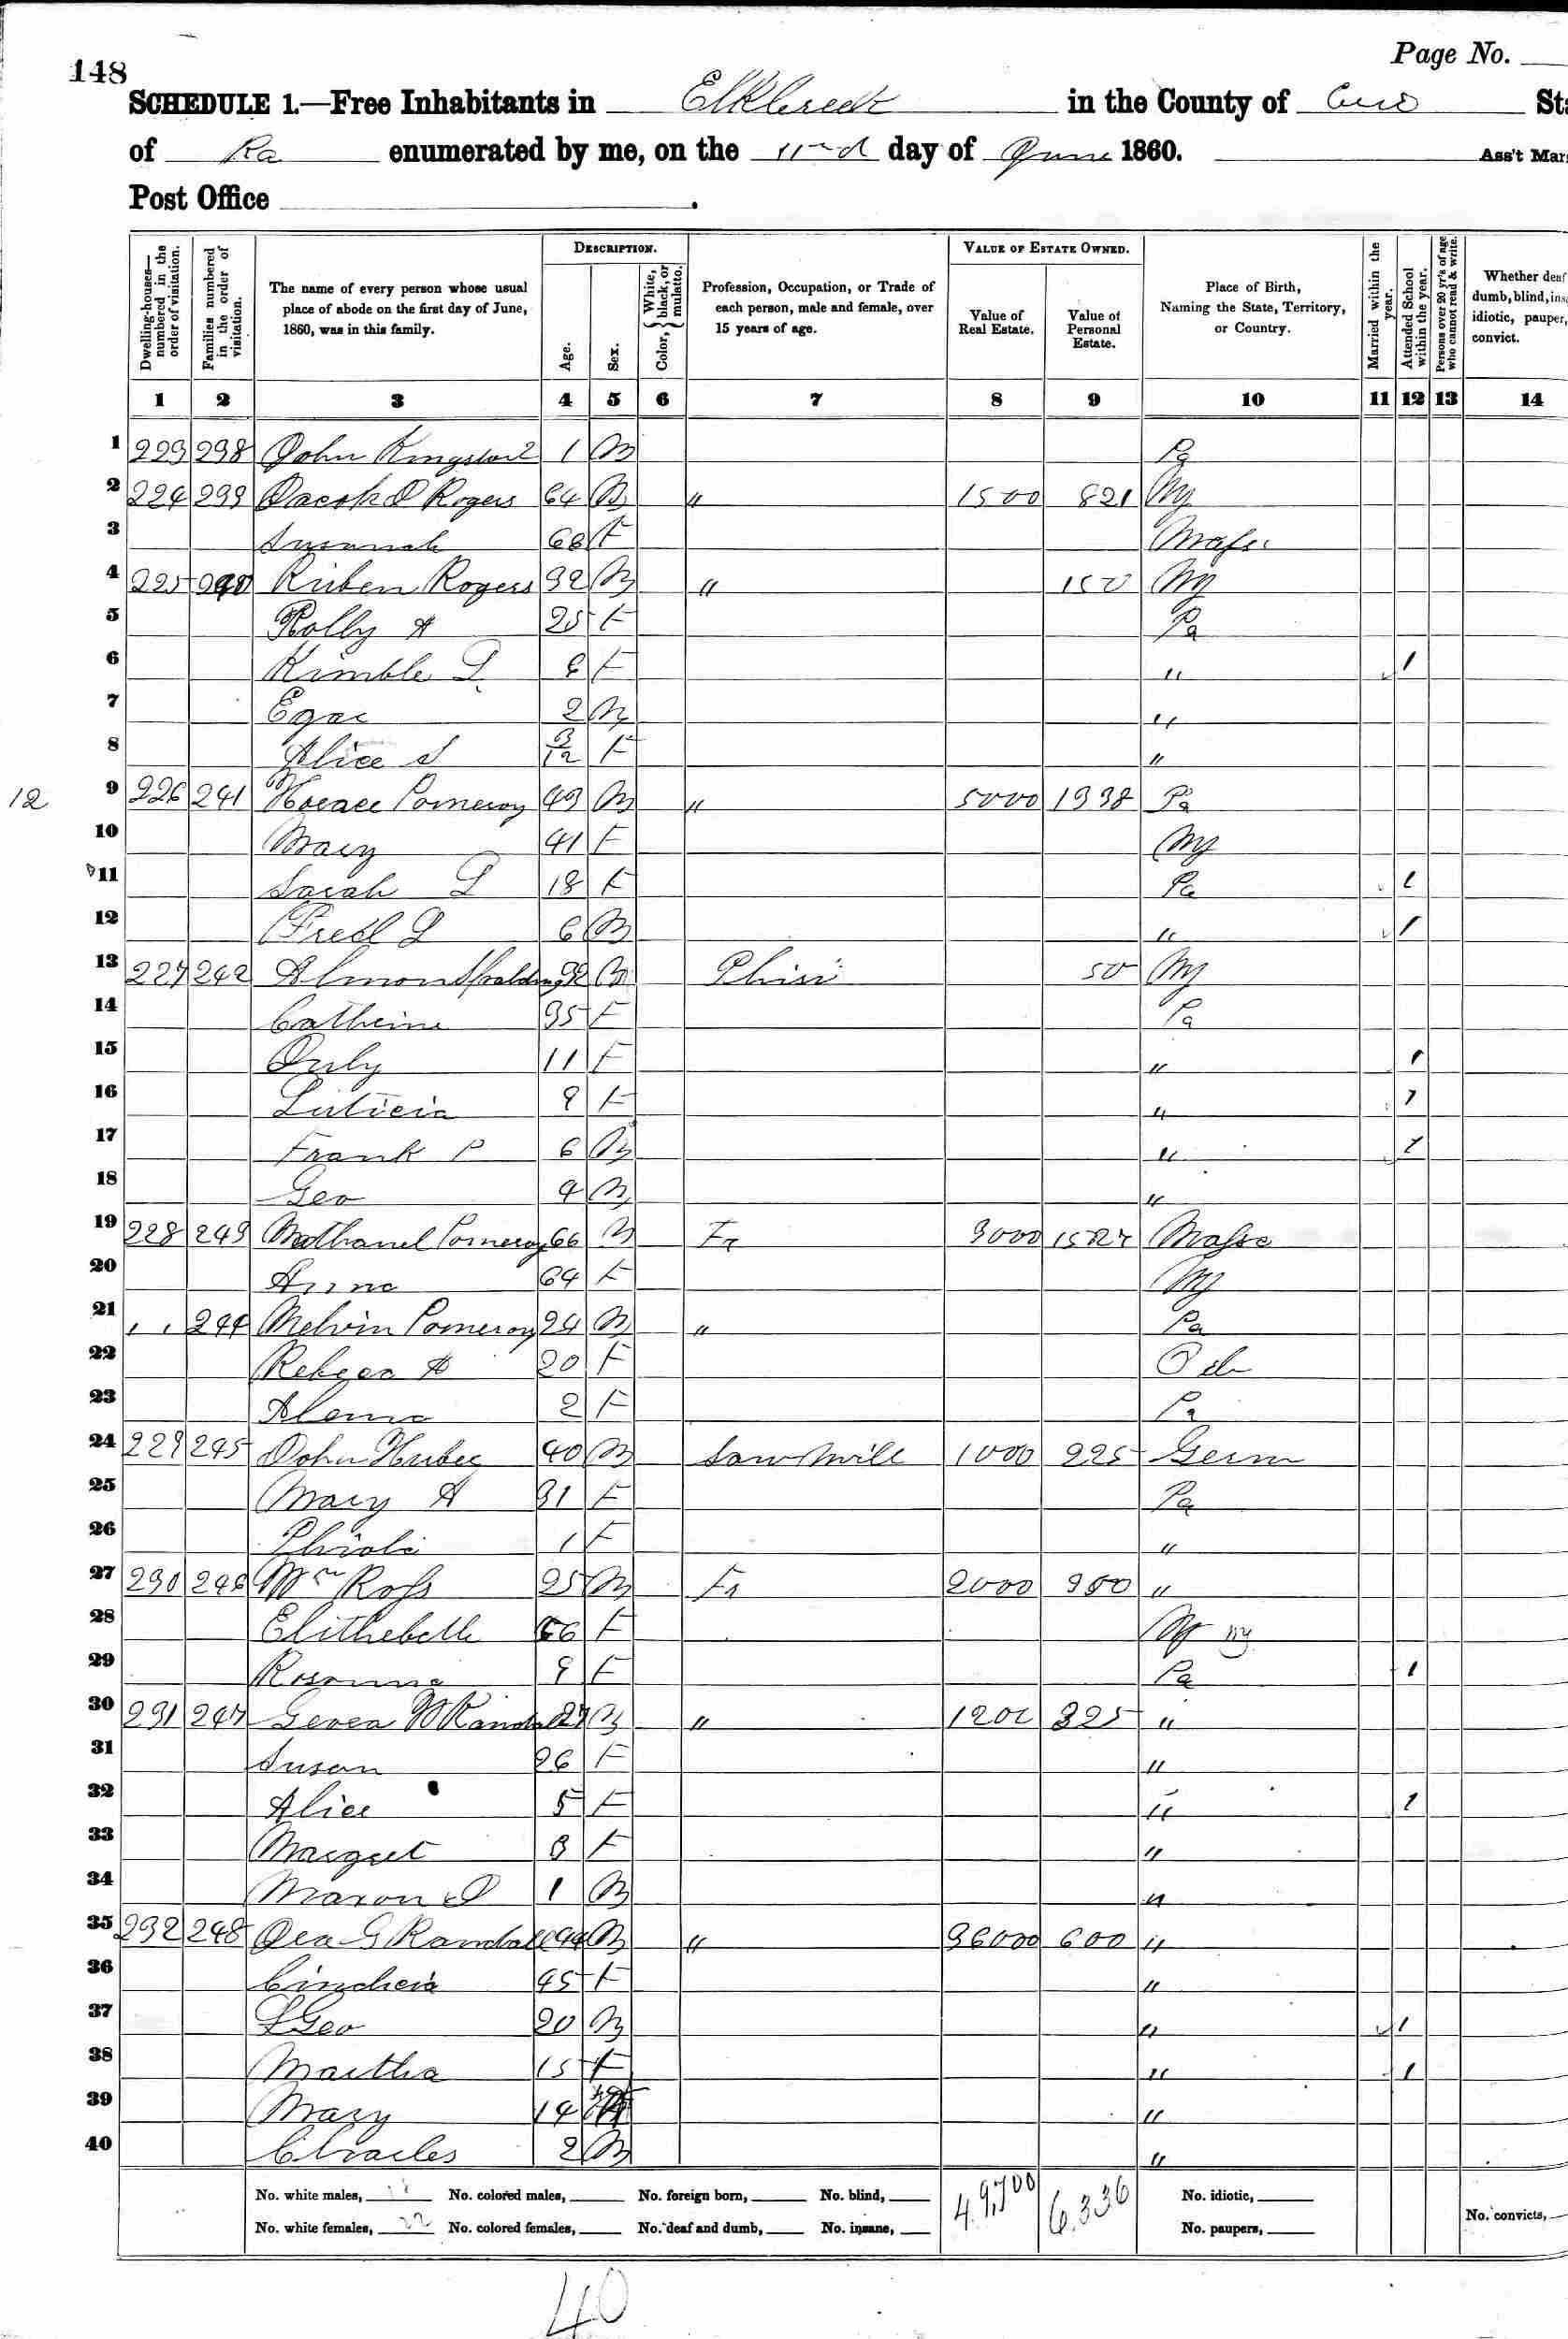 Page No.
148
SCHEDULE 1.—Free Inhabitants in Elkcreek in the County of Erie St
of Pa enumerated by me, on the day of June 1860. Ass't Mar
Post Office .
Dwelling-houses—numbered in the order of visitation.
Families numbered in the order of visitation.
The name of every person whose usual place of abode on the first day of June, 1860, was in this family.
DESCRIPTION.
Age.
Sex.
Color, { White, black, or mulatto.
Profession, Occupation, or Trade of each person, male and female, over 15 years of age.
VALUE OF ESTATE OWNED.
Value of Real Estate.
Value of Personal Estate.
Place of Birth, Naming the State, Territory, or Country.
Married within the year.
Attended School within the year.
Persons over 20 y'rs of age who cannot read & write.
Whether deaf dumb, blind, ins idiotic, pauper, convict.
1 2 3 4 5 6 7 8 9 10 11 12 13 14
1 223 238 John 1 M Pa
2 224 239 Jacob D Rogers 64 M " 1500 821 NY
3 Susannah 66 F Mass
4 225 240 Ruben Rogers 32 M " 150 NY
5 Polly A 25 F Pa
6 Kimble 6 F " 1
7 2 M "
8 Alice S 3/12 F "
12 9 226 241 Horace Pomeroy 43 M " 5000 1338 Pa
10 Mary 41 F NY
11 Sarah 18 F Pa 1
12 Fred 6 M " 1
13 227 242 Almon Spalding 32 M 50 NY
14 Catheine 35 F Pa
15 July 11 F " 1
16 Luticia 9 F " 1
17 Frank P 6 M " 1
18 Geo 4 M "
19 228 243 Nathanel Pomeroy 66 M Fr 3000 1527 Mass
20 Anna 64 F NY
21 " 244 Melvin Pomeroy 24 M " Pa
22 Rebecca A 20 F
23 2 F Pa
24 229 245 John Huber 40 M Saw Mill 1000 225 Germ
25 Mary A 31 F Pa
26 1 F "
27 230 246 Wm Ross 25 M Fr 2000 300 "
28 66 F NY
29 Rosanna 9 F Pa 1
30 231 247 W Randall 27 M " 1200 325 "
31 Susan 26 F "
32 Alice 5 F " 1
33 Margret 3 F "
34 1 M "
35 232 248 G Randall 44 M " 36000 600 "
36 45 F "
37 Geo 20 M " 1
38 Martha 15 F " 1
39 Mary 14 "
40 Charles 2 M "
No. white males, 18 No. colored males, No. foreign born, No. blind, 49,700 6,336 No. idiotic,
No. white females, 22 No. colored females, No. deaf and dumb, No. insane, No. paupers, No. convicts,
40